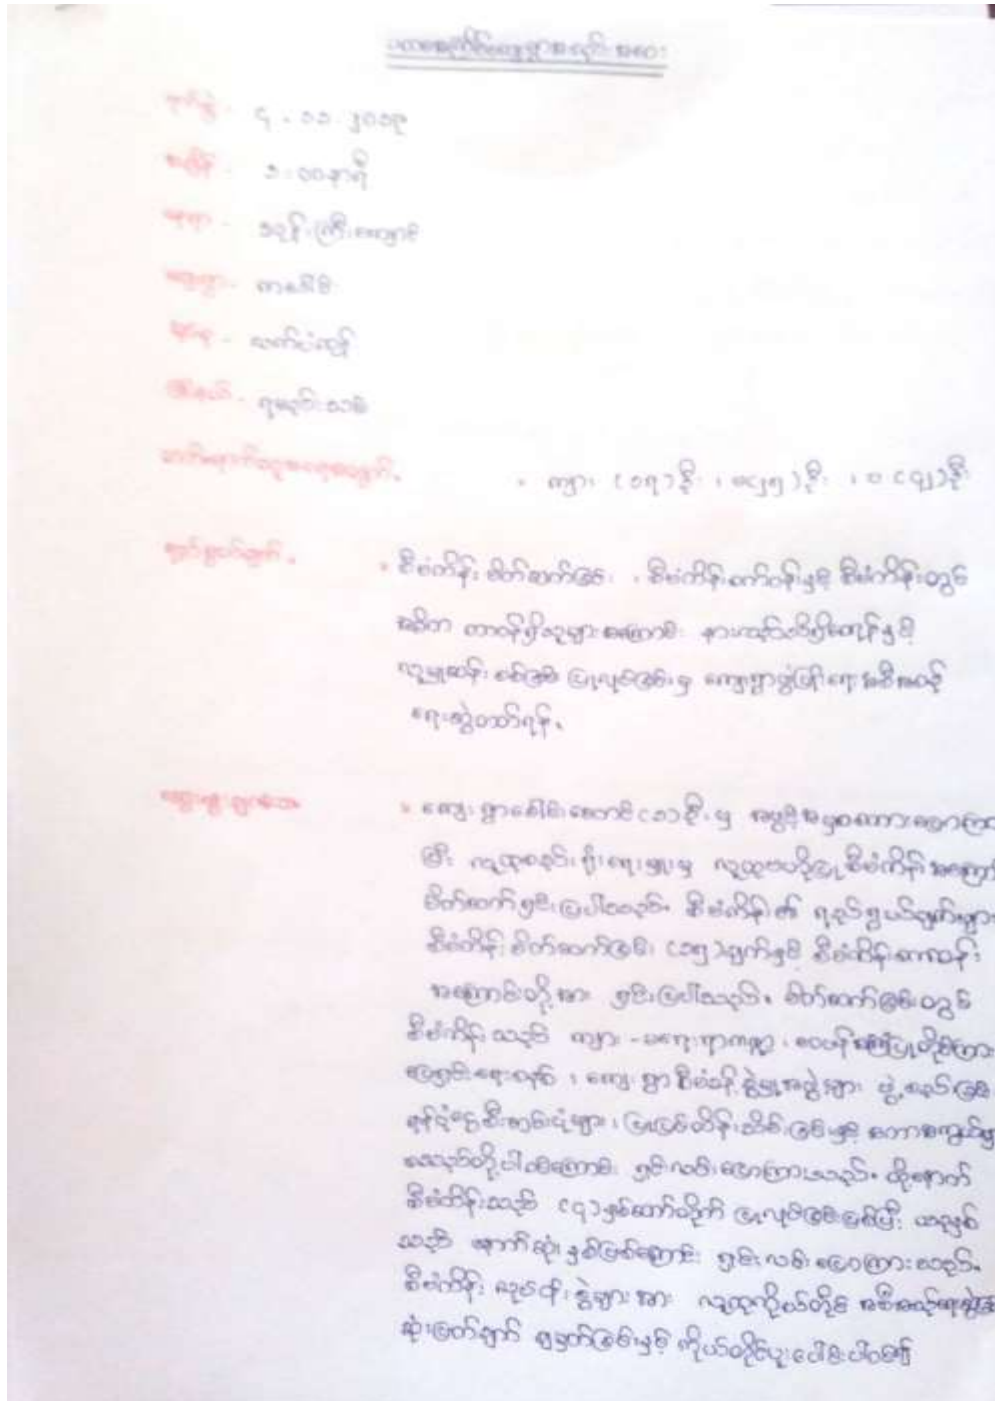 ပထမအကြိမ်ကျေးရွာအစည်းအဝေး
ရက်စွဲ - ၄ . ၁၁ . ၂၀၁၉
အချိန် - ၁ : ၀၀ နာရီ
နေရာ - ဘုန်းကြီးကျောင်း
ကျေးရွာ -
အုပ်စု - လက်ပံ
မြို့နယ် - ရမည်းသင်း
တက်ရောက်သူအရေအတွက် - ကျား (၁၇) ဦး ၊ မ (၂၅) ဦး ၊ ပ (၄၂) ဦး
ရည်ရွယ်ချက် - စီမံကိန်း မိတ်ဆက်ခြင်း ၊ စီမံကိန်းကော်မန်းနှင့် စီမံကိန်းတွင်
အဓိက တာဝန်ရှိသူများအကြောင်း နားလည်သိရှိစေရန်နှင့်
လူမှုဆန်းစစ်ခြင်း ပြုလုပ်ခြင်းမှ ကျေးရွာဖွံ့ဖြိုးရေး အစီအစဉ်
ရေးဆွဲတတ်ရန် ။
ဆွေးနွေးချက် - ကျေးရွာခေါင်းဆောင် (၁) ဦး မှ အဖွင့်အမှာစကားပြောကြား
ပြီး လူထုစည်းရုံးရေးမှူးမှ လူထုဗဟိုပြုစီမံကိန်းအကြောင်း
မိတ်ဆက်ရှင်းပြပါသည်။ စီမံကိန်း၏ ရည်ရွယ်ချက်များ
စီမံကိန်း မိတ်ဆက်ခြင်း (၁၅) ချက်နှင့် စီမံကိန်း
အကြောင်းတို့အား ရှင်းပြပါသည်။ မိတ်ဆက်ခြင်းတွင်
စီမံကိန်းသည် ကျား - မရေးရာကဏ္ဍ ၊ ဝေဖန်အကြံပြုတိုင်ကြား
ဖြေရှင်းရေးစနစ် ၊ ကျေးရွာစီမံခန့်ခွဲမှုအဖွဲ့များ ဖွဲ့စည်းခြင်း
ရန်ပုံငွေစီးဆင်းပုံများ ၊ ပြုပြင်ထိန်းသိမ်းခြင်းနှင့်
စသည်တို့ပါဝင်ကြောင်း ရှင်းလင်းပြောကြားသည်။ ထို့နောက်
စီမံကိန်းသည် (၄) နှစ်ဆက်တိုက် ပြုလုပ်ခြင်းဖြစ်ပြီး ယခုနှစ်
သည် နောက်ဆုံးနှစ်ဖြစ်ကြောင်း ရှင်းလင်းပြောကြားသည်။
စီမံကိန်း လုပ်ငန်းခွဲများအား လူထုကိုယ်တိုင် အစီအစဉ်ရေးဆွဲ
ဆုံးဖြတ်ချက် ချမှတ်ခြင်းနှင့် ကိုယ်တိုင်ပူးပေါင်းပါဝင်၍